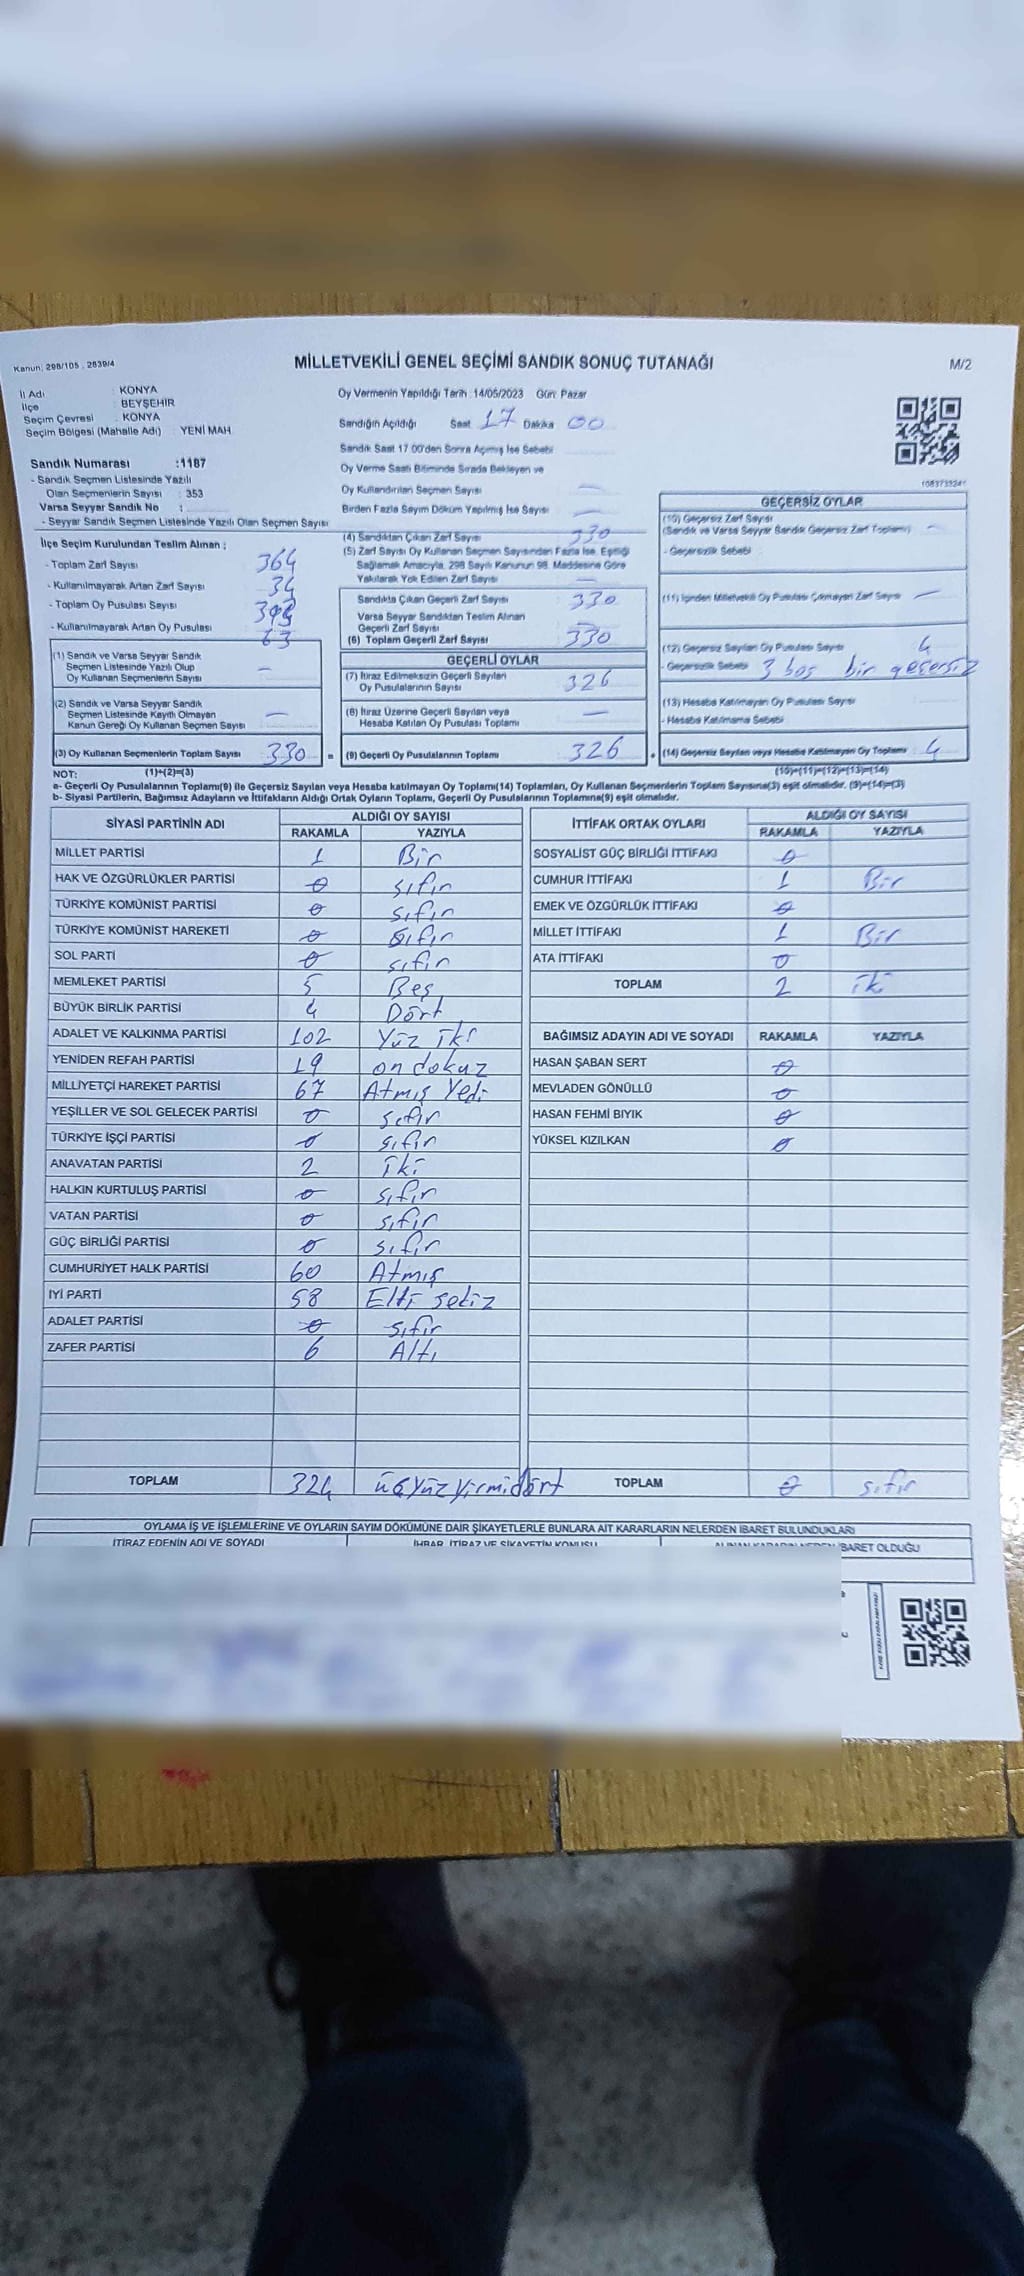 Kanun; 298/105 , 2839/4
MİLLETVEKİLİ GENEL SEÇİMİ SANDIK SONUÇ TUTANAĞI
M/2
İl Adı : KONYA
İlçe : BEYŞEHİR
Seçim Çevresi : KONYA
Seçim Bölgesi (Mahalle Adı) : YENİ MAH.
Sandık Numarası :1187
- Sandık Seçmen Listesinde Yazılı
Olan Seçmenlerin Sayısı : 353
Varsa Seyyar Sandık No :
- Seyyar Sandık Seçmen Listesinde Yazılı Olan Seçmen Sayısı
İlçe Seçim Kurulundan Teslim Alınan ;
- Toplam Zarf Sayısı 364
- Kullanılmayarak Artan Zarf Sayısı 34
- Toplam Oy Pusulası Sayısı
- Kullanılmayarak Artan Oy Pusulası 63
(1) Sandık ve Varsa Seyyar Sandık
Seçmen Listesinde Yazılı Olup
Oy Kullanan Seçmenlerin Sayısı —
(2) Sandık ve Varsa Seyyar Sandık
Seçmen Listesinde Kayıtlı Olmayan
Kanun Gereği Oy Kullanan Seçmen Sayısı —
(3) Oy Kullanan Seçmenlerin Toplam Sayısı 330 =
Oy Vermenin Yapıldığı Tarih :14/05/2023 Gün: Pazar
Sandığın Açıldığı Saat 17 Dakika 00
Sandık Saat 17:00'den Sonra Açılmış İse Sebebi —
Oy Verme Saati Bitiminde Sırada Bekleyen ve
Oy Kullandırılan Seçmen Sayısı —
Birden Fazla Sayım Döküm Yapılmış İse Sayısı —
(4) Sandıktan Çıkan Zarf Sayısı 330
(5) Zarf Sayısı Oy Kullanan Seçmen Sayısından Fazla İse, Eşitliği
Sağlamak Amacıyla, 298 Sayılı Kanunun 98. Maddesine Göre
Yakılarak Yok Edilen Zarf Sayısı —
Sandıkta Çıkan Geçerli Zarf Sayısı 330
Varsa Seyyar Sandıktan Teslim Alınan
Geçerli Zarf Sayısı
(6) Toplam Geçerli Zarf Sayısı 330
GEÇERLİ OYLAR
(7) İtiraz Edilmeksizin Geçerli Sayılan
Oy Pusulalarının Sayısı 326
(8) İtiraz Üzerine Geçerli Sayılan veya
Hesaba Katılan Oy Pusulası Toplamı —
(9) Geçerli Oy Pusulalarının Toplamı 326 +
108373324
GEÇERSİZ OYLAR
(10) Geçersiz Zarf Sayısı
(Sandık ve Varsa Seyyar Sandık Geçersiz Zarf Toplamı) —
- Geçersizlik Sebebi :
(11) İçinden Milletvekili Oy Pusulası Çıkmayan Zarf Sayısı —
(12) Geçersiz Sayılan Oy Pusulası Sayısı 4
- Geçersizlik Sebebi 3 boş bir geçersiz
(13) Hesaba Katılmayan Oy Pusulası Sayısı
- Hesaba Katılmama Sebebi
(14) Geçersiz Sayılan veya Hesaba Katılmayan Oy Toplamı 4
NOT: (1)+(2)=(3) (10)+(11)+(12)+(13)=(14)
a- Geçerli Oy Pusulalarının Toplamı(9) ile Geçersiz Sayılan veya Hesaba katılmayan Oy Toplamı(14) Toplamları, Oy Kullanan Seçmenlerin Toplam Sayısına(3) eşit olmalıdır. (9)+(14)=(3)
b- Siyasi Partilerin, Bağımsız Adayların ve İttifakların Aldığı Ortak Oyların Toplamı, Geçerli Oy Pusulalarının Toplamına(9) eşit olmalıdır.
SİYASİ PARTİNİN ADI ALDIĞI OY SAYISI
RAKAMLA YAZIYLA
MİLLET PARTİSİ 1 Bir
HAK VE ÖZGÜRLÜKLER PARTİSİ 0 sıfır
TÜRKİYE KOMÜNİST PARTİSİ 0 sıfır
TÜRKİYE KOMÜNİST HAREKETİ 0 sıfır
SOL PARTİ 0 sıfır
MEMLEKET PARTİSİ 5 Beş
BÜYÜK BİRLİK PARTİSİ 4 Dört
ADALET VE KALKINMA PARTİSİ 102 Yüz iki
YENİDEN REFAH PARTİSİ 19 on dokuz
MİLLİYETÇİ HAREKET PARTİSİ 67 Atmış Yedi
YEŞİLLER VE SOL GELECEK PARTİSİ 0 sıfır
TÜRKİYE İŞÇİ PARTİSİ 0 sıfır
ANAVATAN PARTİSİ 2 iki
HALKIN KURTULUŞ PARTİSİ 0 sıfır
VATAN PARTİSİ 0 sıfır
GÜÇ BİRLİĞİ PARTİSİ 0 sıfır
CUMHURİYET HALK PARTİSİ 60 Atmış
İYİ PARTİ 58 Elli sekiz
ADALET PARTİSİ 0 sıfır
ZAFER PARTİSİ 6 Altı
TOPLAM 324 üçyüzyirmidört
İTTİFAK ORTAK OYLARI ALDIĞI OY SAYISI
RAKAMLA YAZIYLA
SOSYALİST GÜÇ BİRLİĞİ İTTİFAKI 0
CUMHUR İTTİFAKI 1 Bir
EMEK VE ÖZGÜRLÜK İTTİFAKI 0
MİLLET İTTİFAKI 1 Bir
ATA İTTİFAKI 0
TOPLAM 2 iki
BAĞIMSIZ ADAYIN ADI VE SOYADI RAKAMLA YAZIYLA
HASAN ŞABAN SERT 0
MEVLADEN GÖNÜLLÜ 0
HASAN FEHMİ BIYIK 0
YÜKSEL KIZILKAN 0
TOPLAM 0 sıfır
OYLAMA İŞ VE İŞLEMLERİNE VE OYLARIN SAYIM DÖKÜMÜNE DAİR ŞİKAYETLERLE BUNLARA AİT KARARLARIN NELERDEN İBARET BULUNDUKLARI
İTİRAZ EDENİN ADI VE SOYADI İHBAR, İTİRAZ VE ŞİKAYETİN KONUSU İBARET OLDUĞU